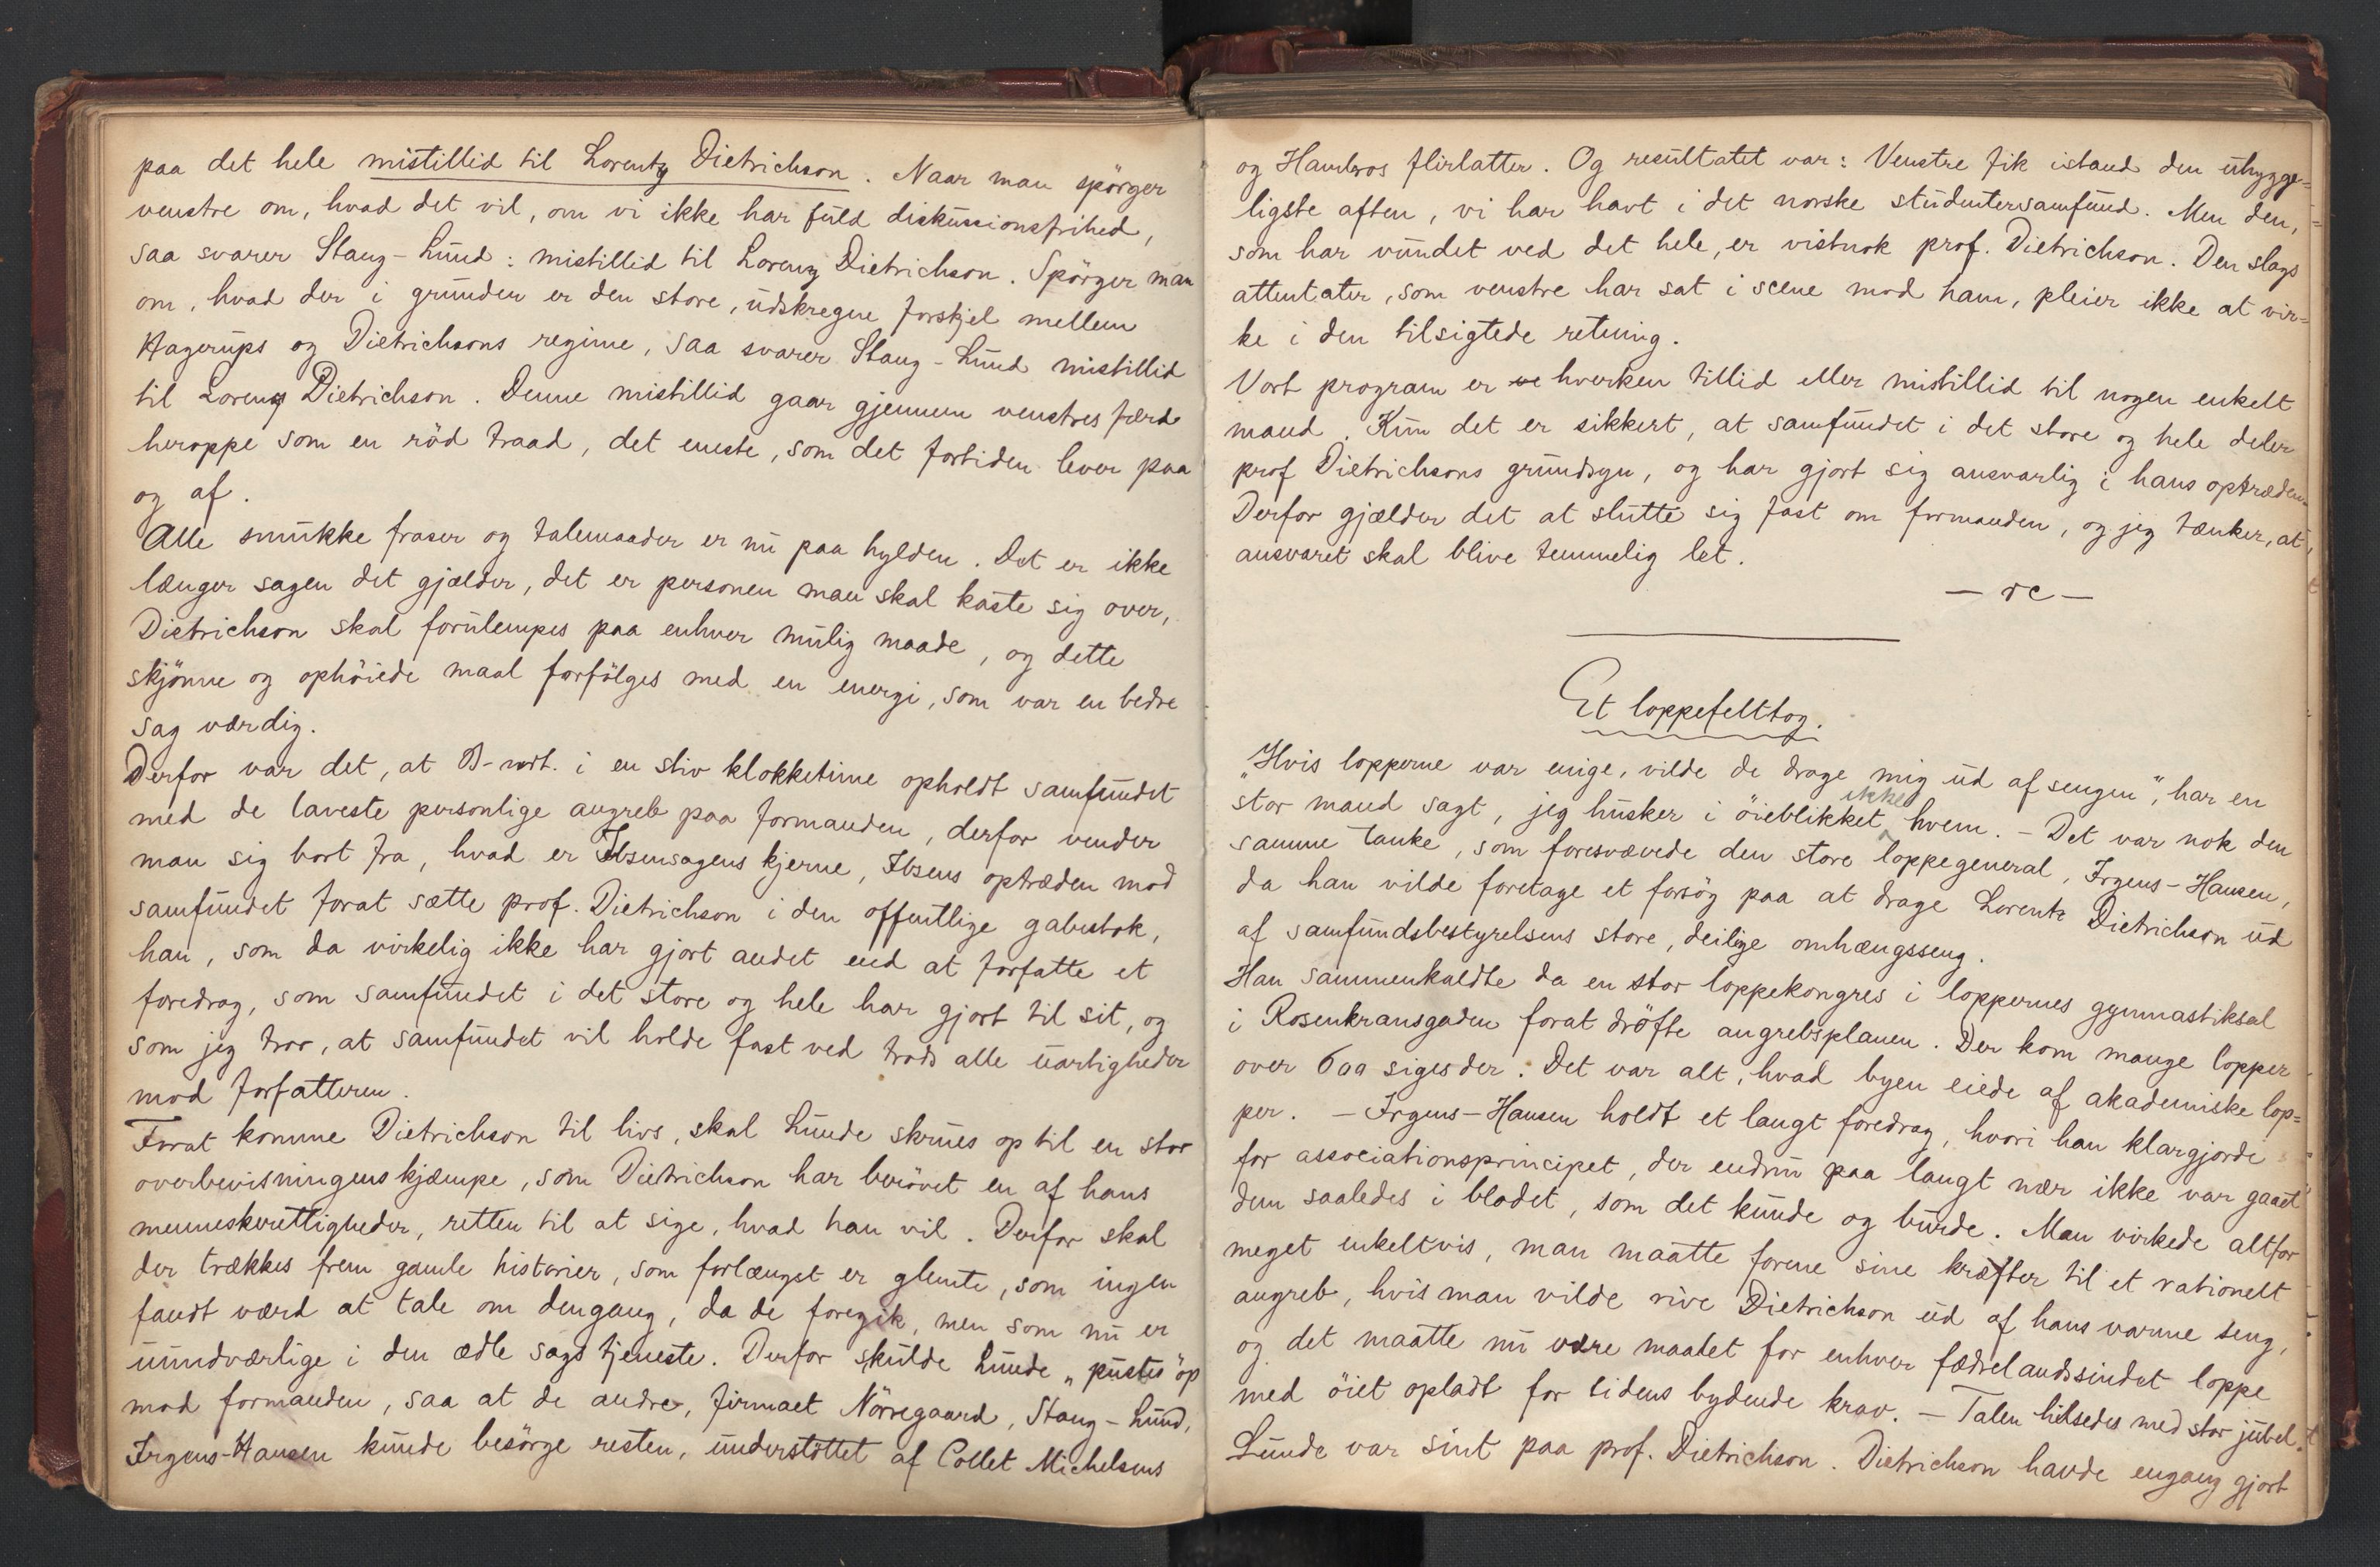 paa det hele mistillid til Lorentz Dietrichson. Naar man spörger
venstre om, hvad det vil, om vi ikke har fuld diskussionsfrihed,
saa svarer Stang-Lund: mistillid til Lorenz Dietrichson. Spörger man
om, hvad der i grunden er den store, udskregne forskjel mellem
Hagerups og Dietrichsons regime, saa svarer Stang-Lund mistillid
til Lorenz Dietrichson. Denne mistillid gaar gjennem venstres færd
heroppe som en röd traad, det eneste, som det fortiden lever paa
og af.
Alle smukke fraser og talemaader er nu paa hylden. Det er ikke
længer sagen det gjælder, det er personen man skal kaste sig over,
Dietrichson skal forulempes paa enhver mulig maade, og dette
skjönne og ophöiede maal forfölges med en energi, som var en bedre
sag værdig.
Derfor var det, at i en stiv klokketime opholdt samfundet
med de laveste personlige angreb paa formanden, derfor vender
man sig bort fra, hvad er Ibsensagens kjerne, Ibsens optræden mod
samfundet forat sætte prof. Dietrichson i den offentlige gabestok,
han, som da virkelig ikke har gjort andet end at forfatte et
foredrag, som samfundet i det store og hele har gjort til sit, og
som jeg tror, at samfundet vil holde fast ved trods alle uartigheder
mod forfatteren.
Forat komme Dietrichson til livs, skal Lunde skrues op til en stor
overbevisningens kjæmpe, som Dietrichson har berövet en af hans
menneskerettigheder, retten til at sige, hvad han vil. Derfor skal
der trækkes frem gamle historier, som forlængst er glemte, som ingen
fandt værd at tale om dengang, da de foregik, men som nu er
uundværlige i den ædle sags tjeneste. Derfor skulde Lunde „pustes“ op
mod formanden, saa at de andre, firmaet Nörregaard, Stang-Lund,
Irgens-Hansen kunde besörge resten, understöttet af Collet Michelsens
og Hambros flirlatter. Og resultatet var: Venstre fik istand den uhygge=
ligste aften, vi har havt i det norske studentersamfund. Men den,
som har vundet ved det hele, er vistnok prof. Dietrichson. Den slags
attentater, som venstre har sat i scene mod ham, pleier ikke at vir=
ke i den tilsigtede retning.
Vort program er hverken tillid eller mistillid til nogen enkelt
mand. Kun det er sikkert, at samfundet i det store og hele deler
prof Dietrichsons grundsyn, og har gjort sig ansvarlig i hans optræden.
Derfor gjælder det at slutte sig fast om formanden, og jeg tænker, at
ansvaret skal blive temmelig let.
— rc —
Et loppefelttog.
„Hvis lopperne var enige, vilde de drage mig ud af sengen“, har en
stor mand sagt, jeg husker i öieblikket ikke hvem. – Det var nok den
samme tanke, som foresvævede den store loppegeneral, Irgens-Hansen,
da han vilde foretage et forsög paa at drage Lorentz Dietrichson ud
af samfundsbestyrelsens store, deilige omhængsseng.
Han sammenkaldte da en stor loppekongres i loppernes gymnastiksal
i Rosenkransgaden forat dröfte angrebsplanen. Der kom mange lopper
over 600 siges der. Det var alt, hvad byen eiede af akademiske lop=
per. – Irgens-Hansen holdt et langt foredrag, hvori han klargjorde
for associationsprincipet, der endnu paa langt nær ikke var gaaet
dem saaledes i blodet, som det kunde og burde. Man virkede altfor
meget enkeltvis, man maatte forene sine kræfter til et rationelt
angreb, hvis man vilde rive Dietrichson ud af hans varme seng,
og det maatte nu være maalet for enhver fædrelandssindet loppe
med öiet opladt for tidens bydende krav. – Talen hilsedes med stor jubel.
Lunde var sint paa prof. Dietrichson. Dietrichson havde engang gjort